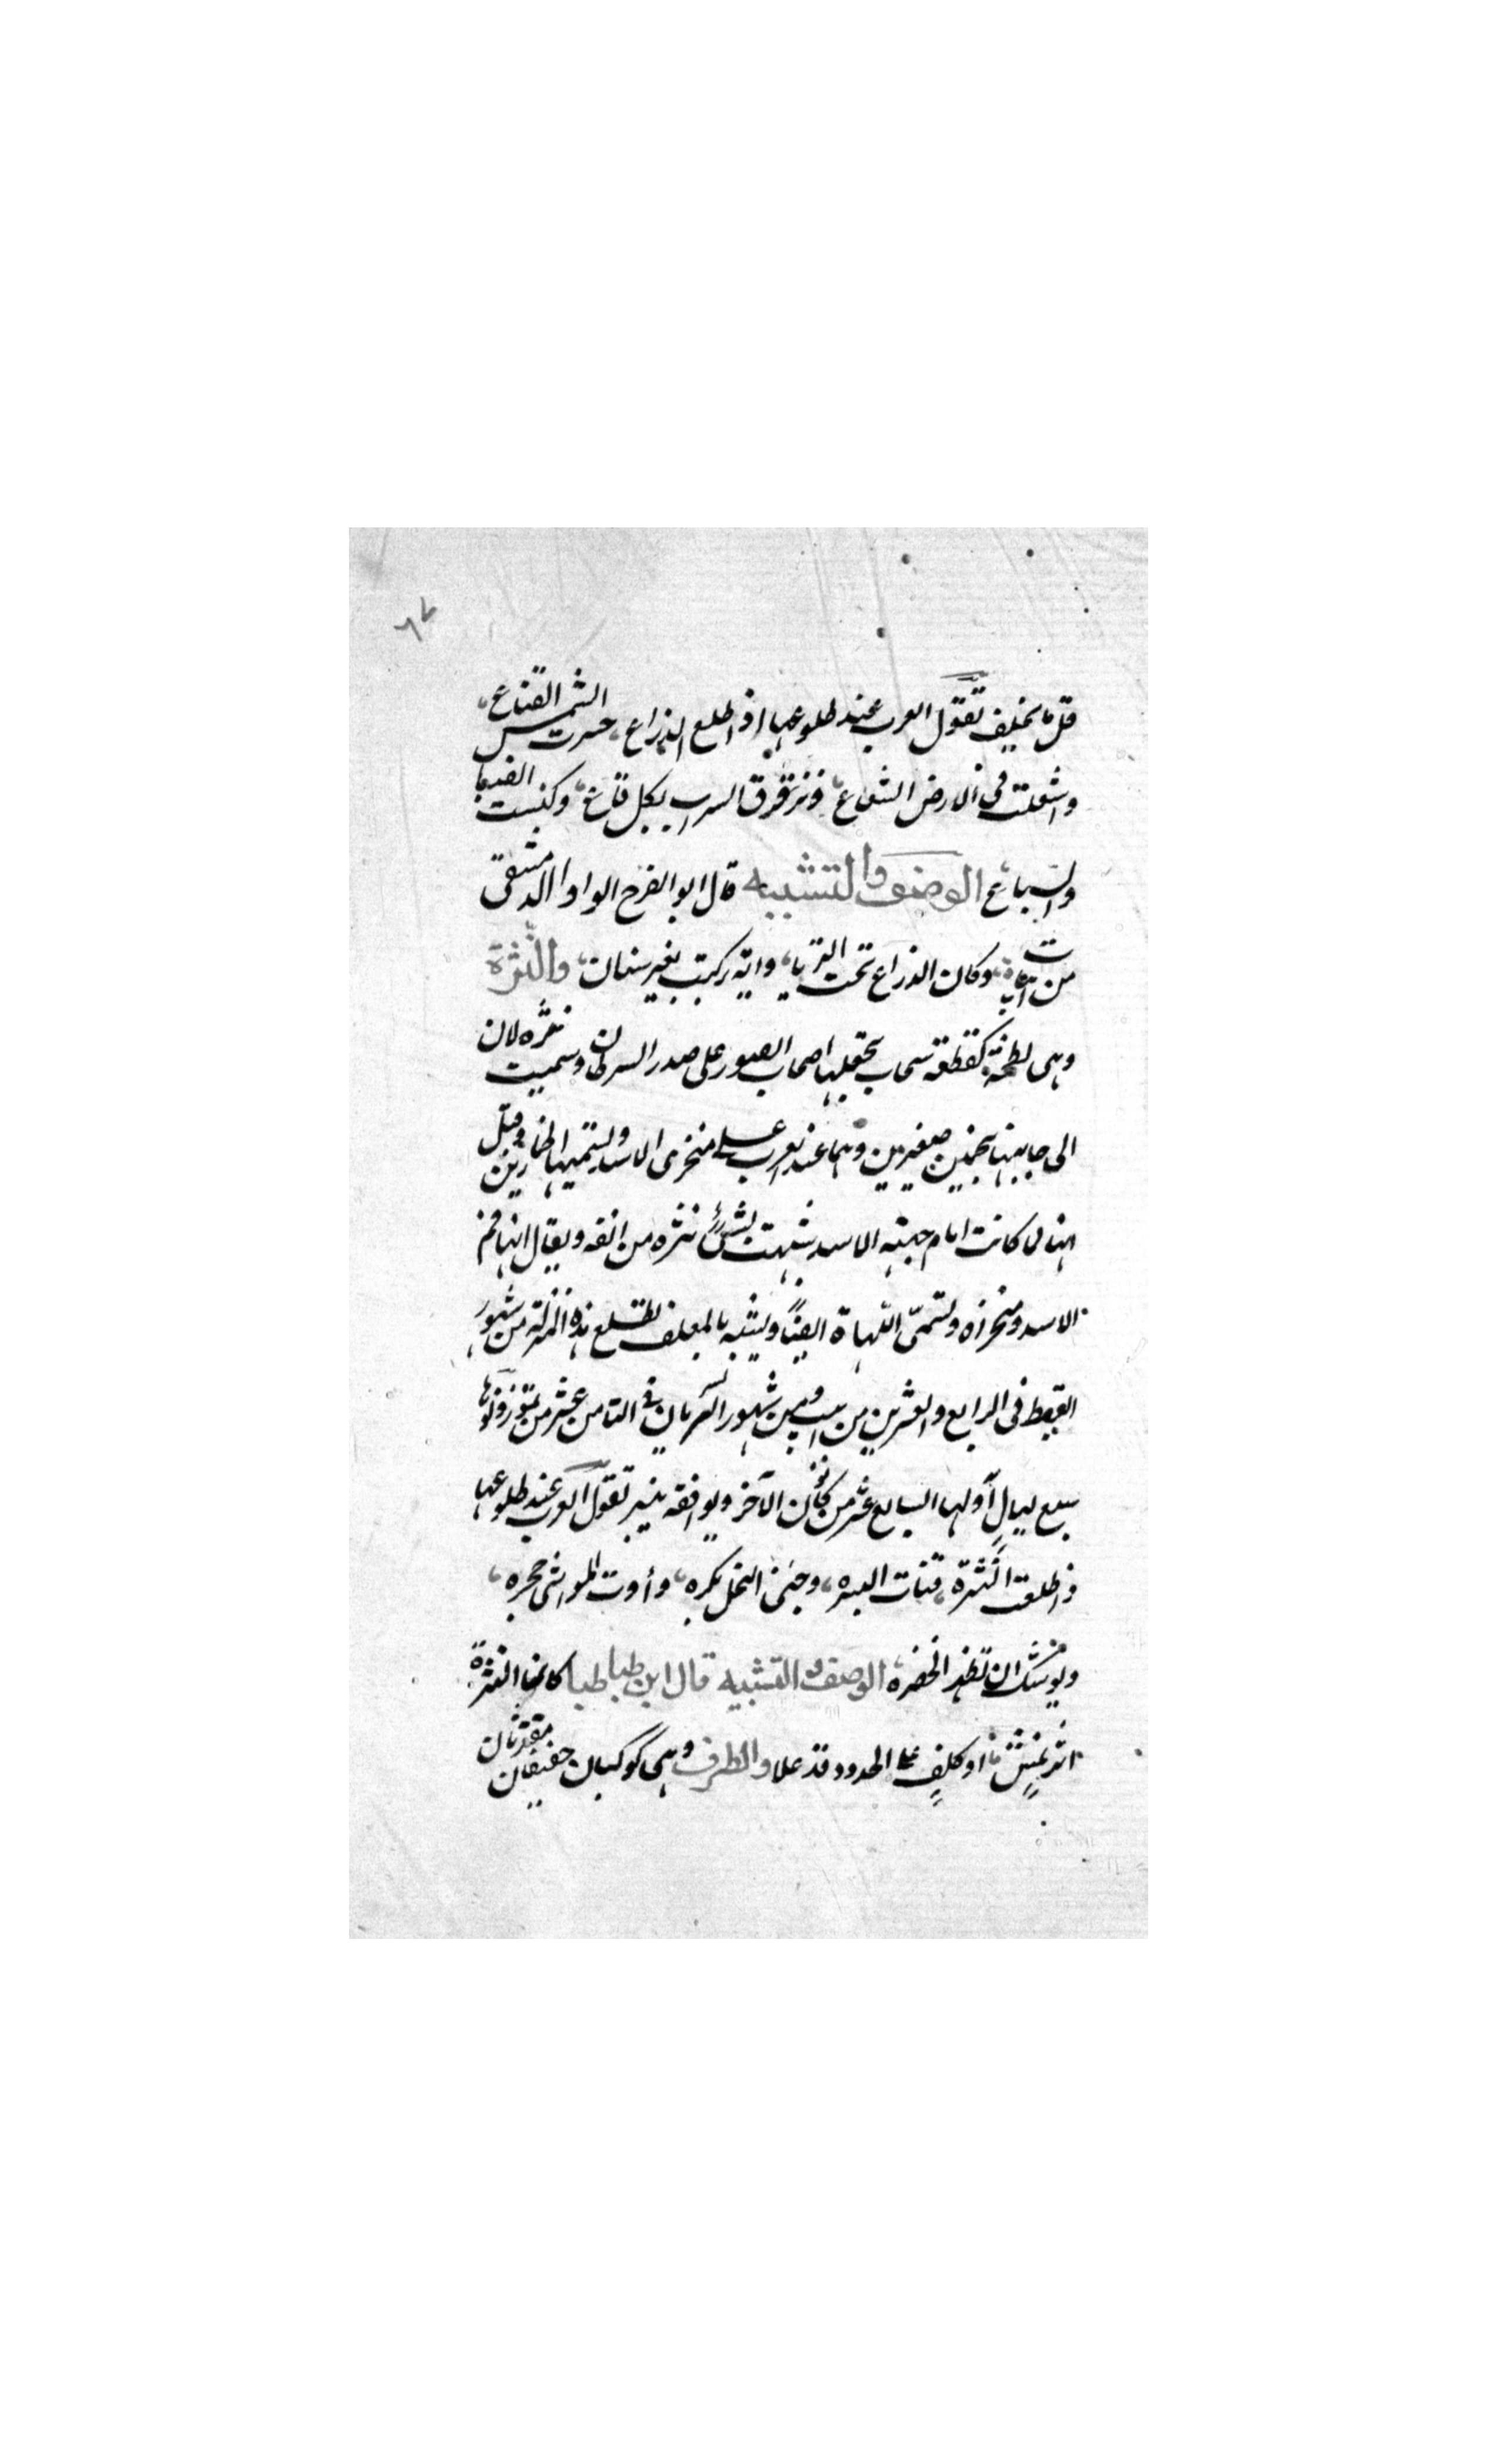 ٦٧
قل ما يخلف تقول العرب عند طلوعها اذا طلع الذراع، حسرت الشمس القناع،
واشعلت فى الارض الشعاع، وترقرق السراب بكل قاع، وكنست الظبا
والسباع الوصف والتشبيه قال ابو الفرج الواوا الدمشقى
من ابيات، وكان الذراع تحت الثريا، راية ركبت بغير سنان، والنثرة
وهى لطخة كقطعة سحاب يجعلها اصحاب الصور على صدر السرطان وسميت نثره لان
الى جانبها نجمين صغيرين وهما عند العرب على منخرى الاسد وتسميها المنخرين وقيل
انها لما كانت امام جبهة الاسد شبهت بشئ نثره من انفه ويقال انها فم
الاسد ومنخراه وتسمى اللهاة ايضاً ويشبه بالمعلف تطلع هذه المنزلة من شهور
القبط فى الرابع والعشرين من ابيب ومن شهور السريان فى الثامن عشر من تموز ونوها
سبع ليالٍ اولها السابع عشر من كانون الآخر ويوافقه تقول العرب عند طلوعها
اذا طلعت النثرة، قنات البسره، وجنى النخل بكره، وأوت المواشى حجره،
ويوشك ان تظهر الخضره، الوصف والتشبيه قال ابن طباطبا كانما النثرة
اثر نمشٍ، او كلفٍ على الخدود قد علا والطرف وهى كوكبان خفيفان مقترنان